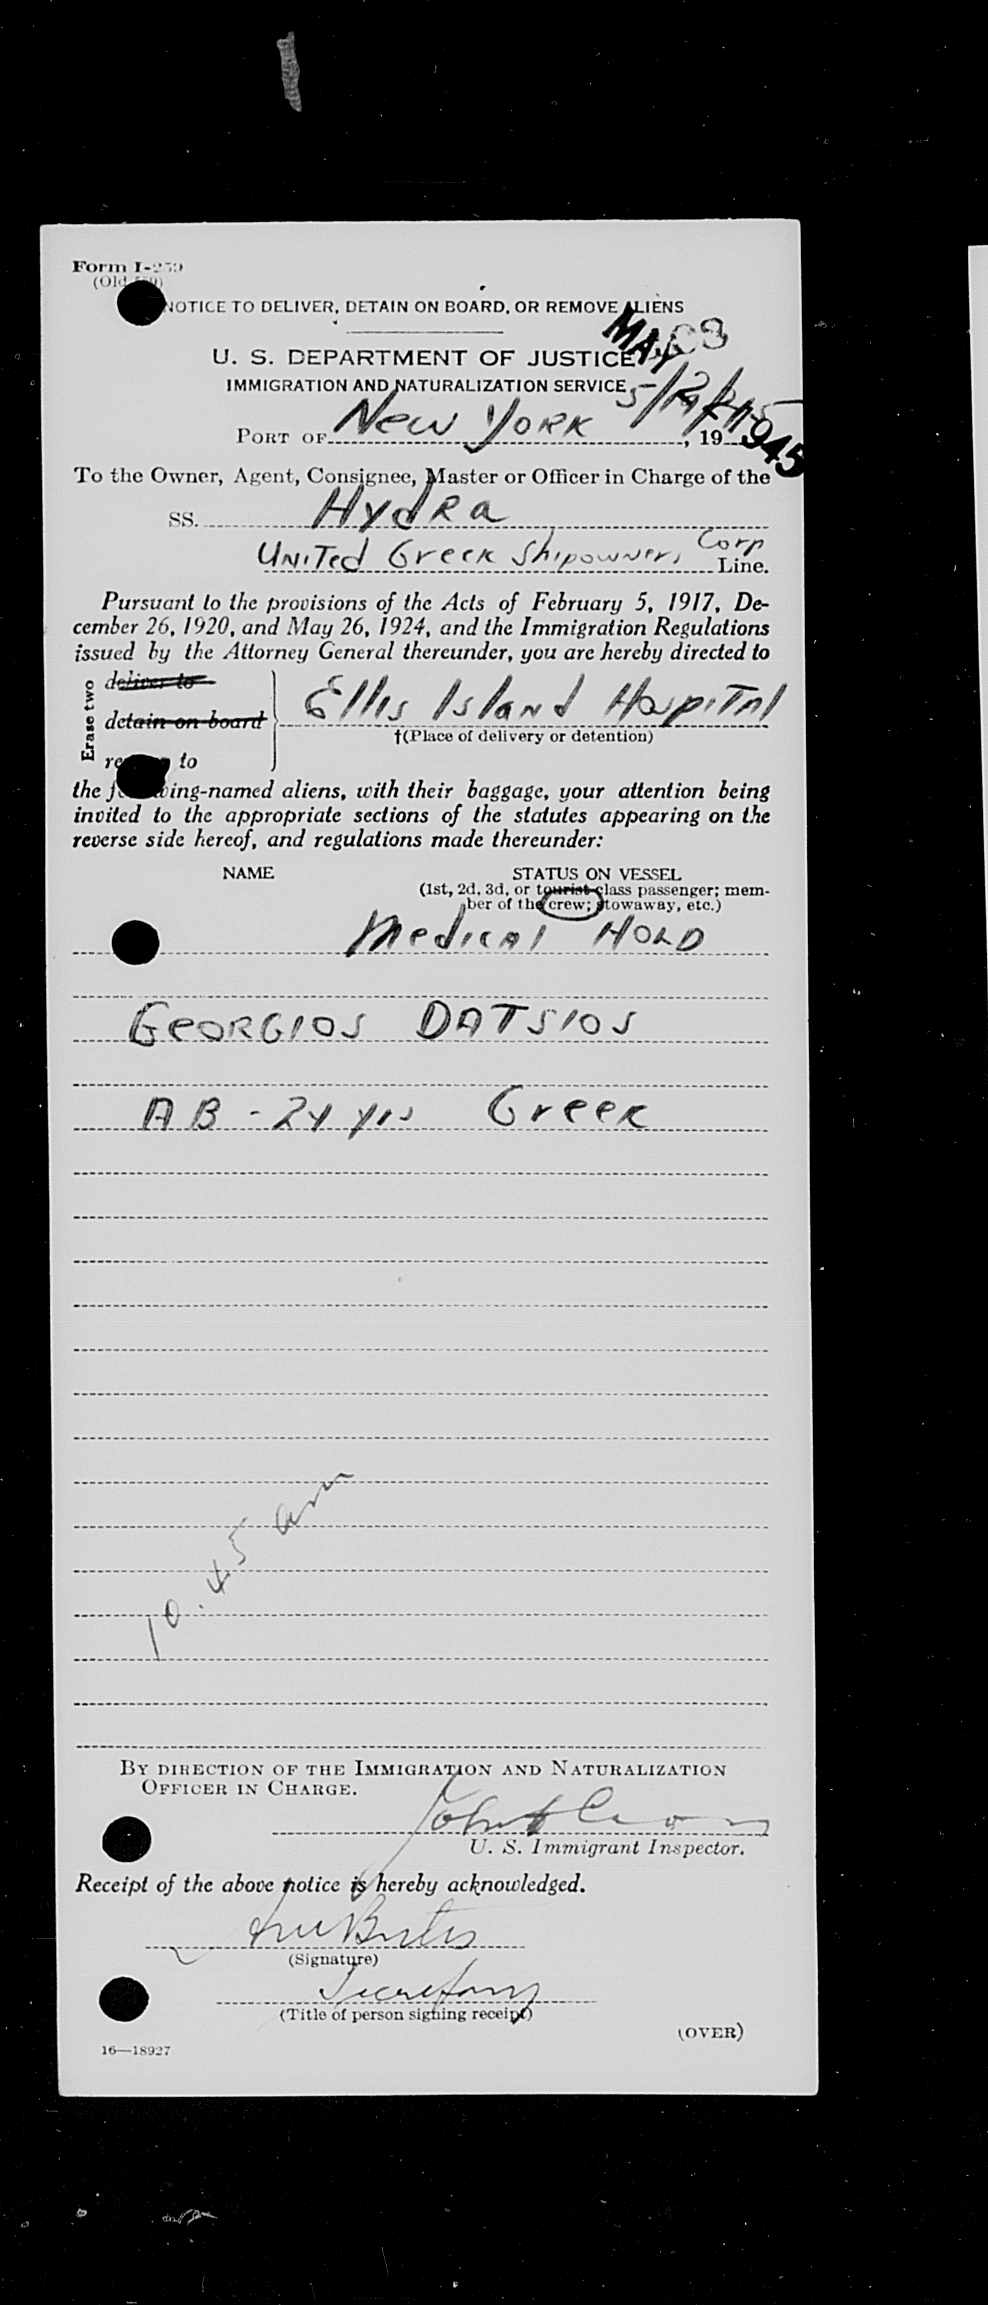 Form I-259
(Old 559)
NOTICE TO DELIVER, DETAIN ON BOARD, OR REMOVE ALIENS
U. S. DEPARTMENT OF JUSTICE MAY
IMMIGRATION AND NATURALIZATION SERVICE
PORT OF New York, 19 1945
To the Owner, Agent, Consignee, Master or Officer in Charge of the
SS. Hydra
United Greek Shipowners Corp
Line.
Pursuant to the provisions of the Acts of February 5, 1917, De-
cember 26, 1920, and May 26, 1924, and the Immigration Regulations
issued by the Attorney General thereunder, you are hereby directed to
Erase two
deliver to
detain on board Ellis Island Hospital
†(Place of delivery or detention)
to
the following-named aliens, with their baggage, your attention being
invited to the appropriate sections of the statutes appearing on the
reverse side hereof, and regulations made thereunder:
NAME STATUS ON VESSEL
(1st, 2d, 3d, or tourist class passenger; mem-
ber of the crew; stowaway, etc.)
Medical Hold
Georgios Datsios
AB - 24 yrs Greek
10.45 am
BY DIRECTION OF THE IMMIGRATION AND NATURALIZATION
OFFICER IN CHARGE.
U. S. Immigrant Inspector.
Receipt of the above notice is hereby acknowledged.
(Signature)
Secretary
(Title of person signing receipt)
(OVER)
16—18927